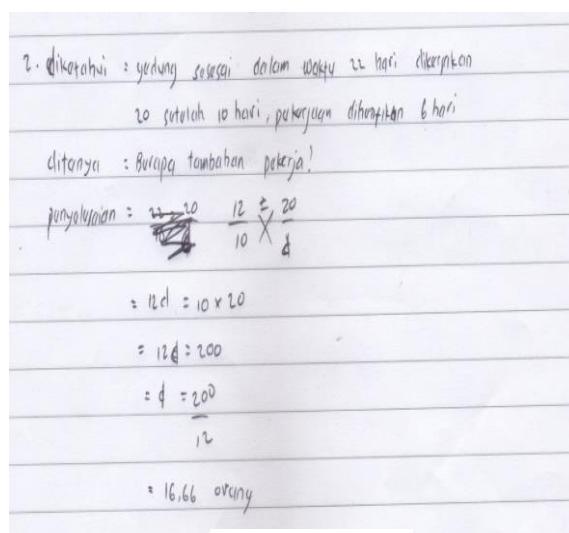 2. diketahui : gedung selesai dalam waktu 22 hari dikerjakan
20 setelah 10 hari, pekerjaan dihentikan 6 hari
ditanya : Berapa tambahan pekerja!
penyelesaian : 22 20 12/10 = 20/d
= 12d = 10 x 20
= 12d = 200
= d = 200/12
= 16,66 orang